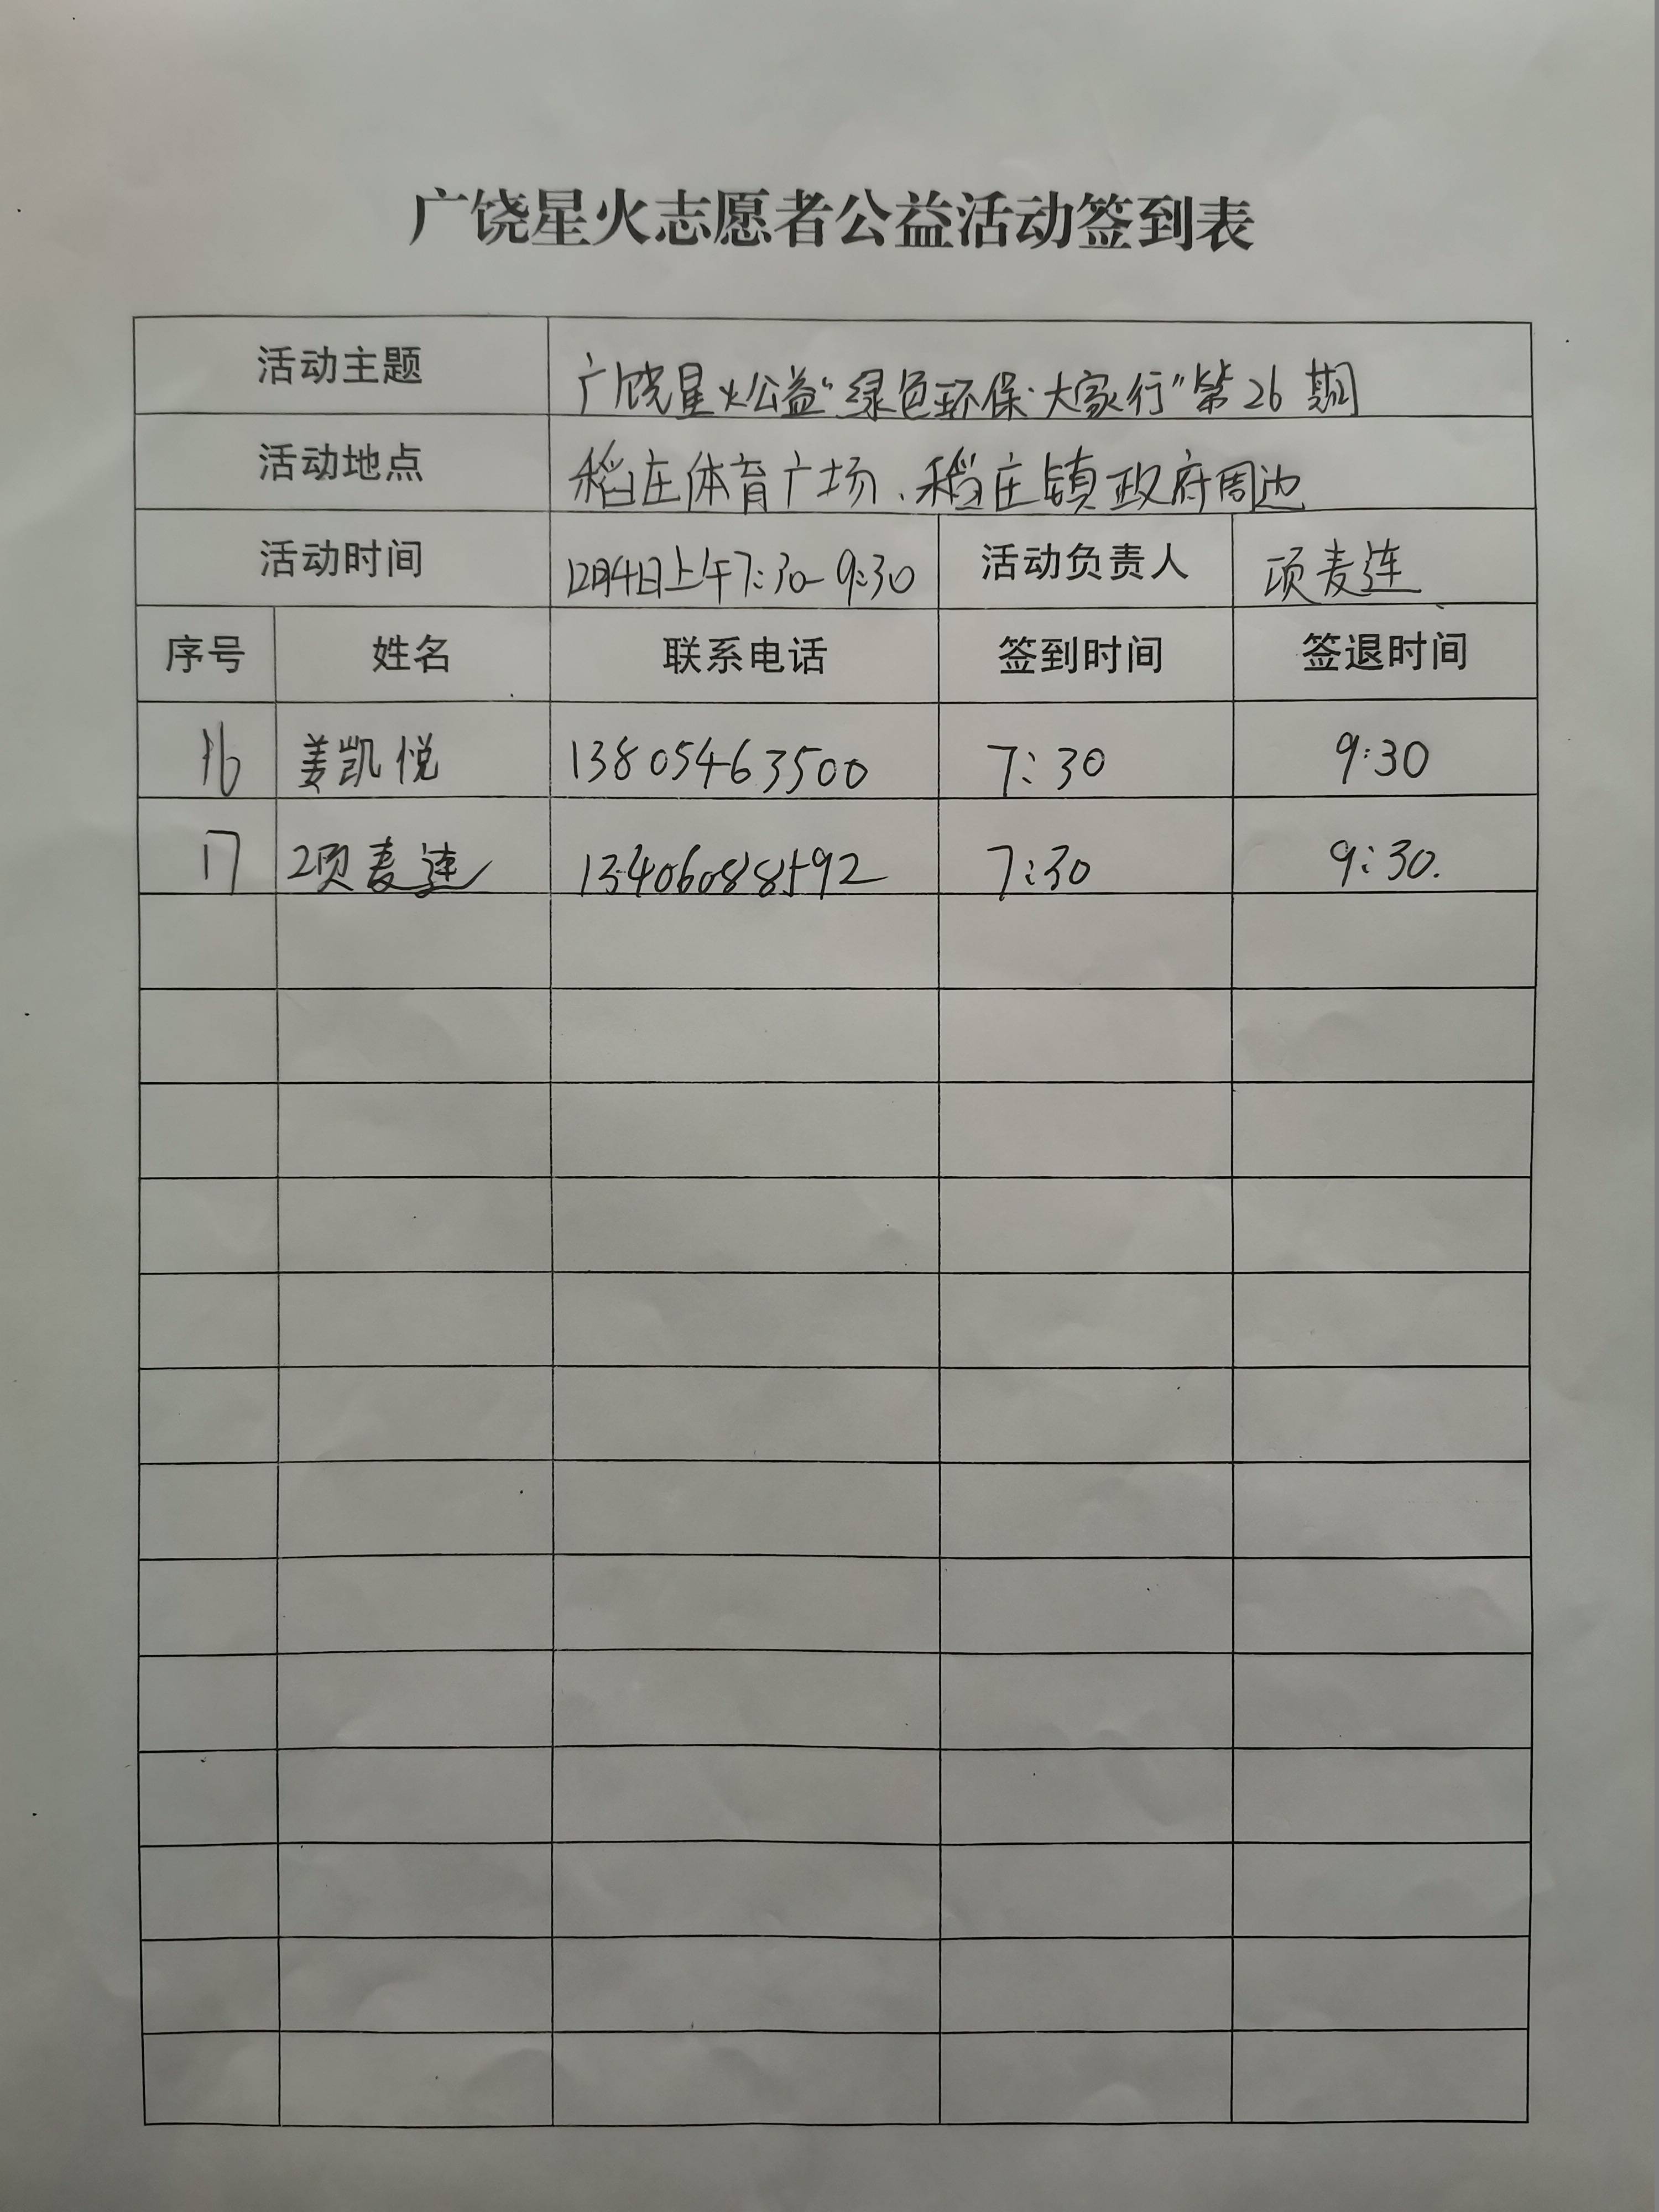 广饶星火志愿者公益活动签到表
活动主题 广饶星火公益“绿色环保·大家行”第26期
活动地点 稻庄体育广场、稻庄镇政府周边
活动时间 12月4日上午7:30-9:30 活动负责人 项麦连
序号 姓名 联系电话 签到时间 签退时间
16 姜凯悦 13805463500 7:30 9:30
17 项麦连 13406088592 7:30 9:30.